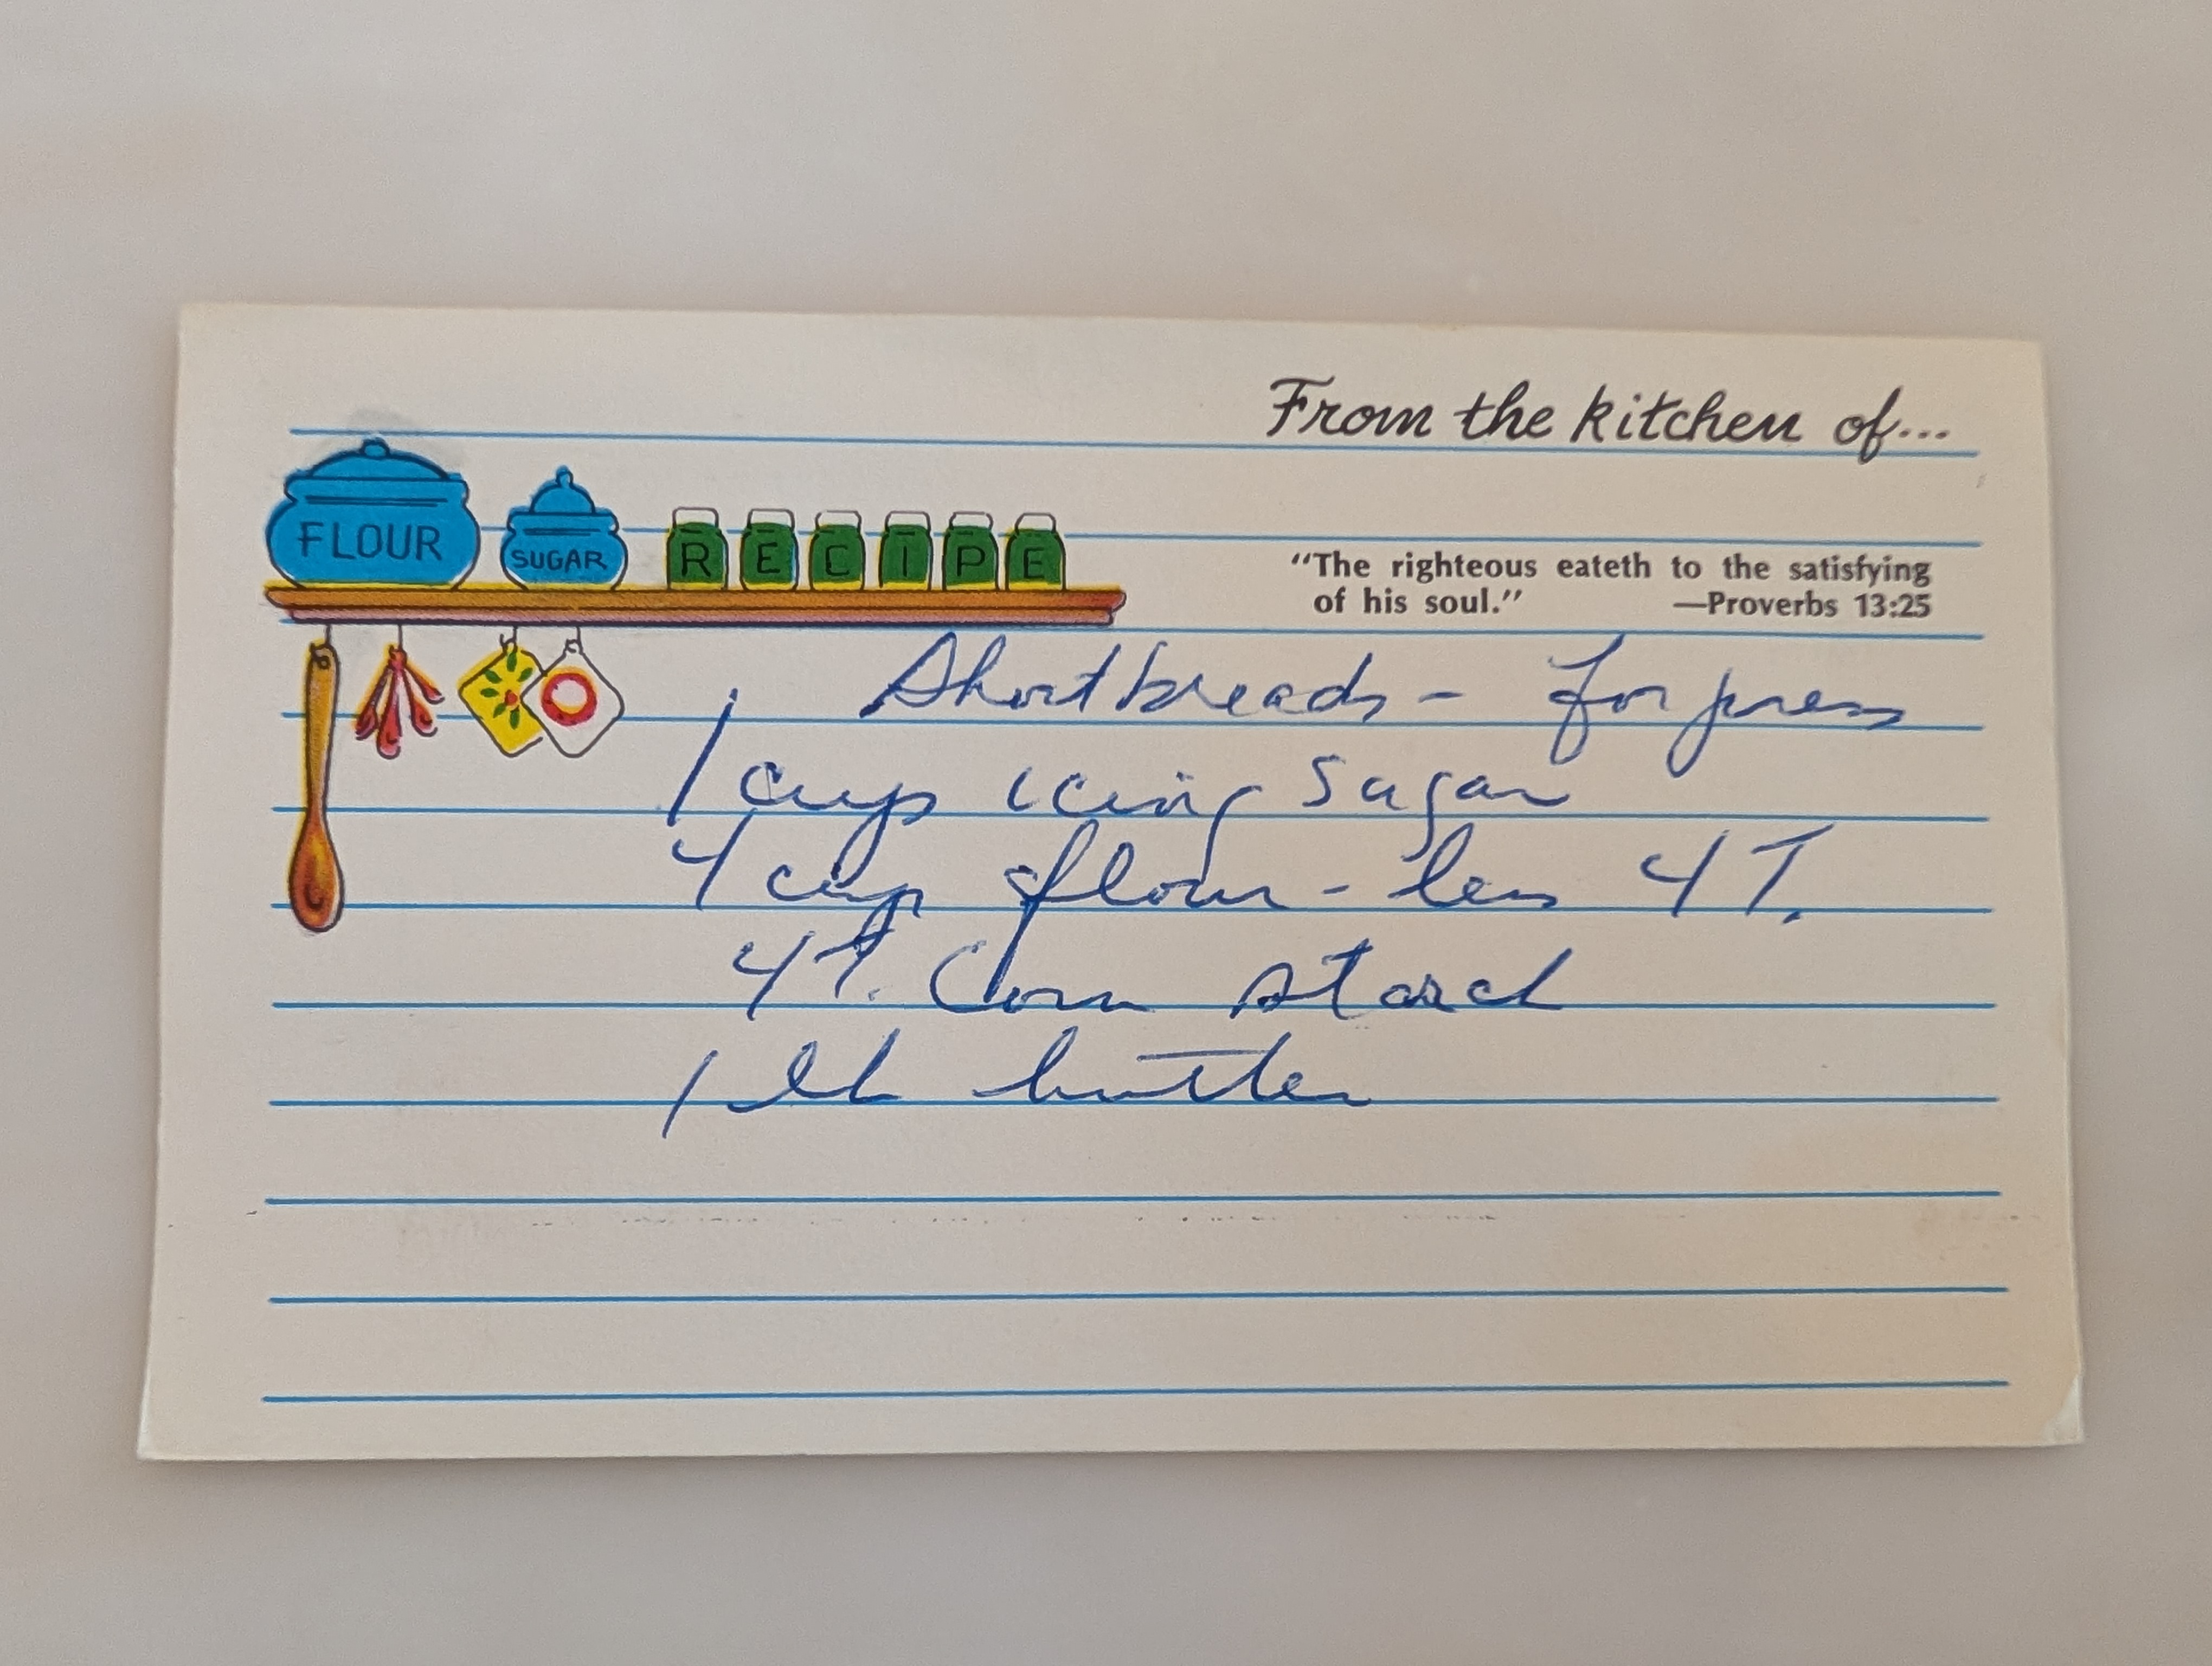 From the kitchen of...
FLOUR
SUGAR
RECIPE
“The righteous eateth to the satisfying
of his soul.” —Proverbs 13:25
Shortbreads - for press
1 cup icing sugar
4 cup flour - less 4 T.
4 T. Corn starch
1 lb butter